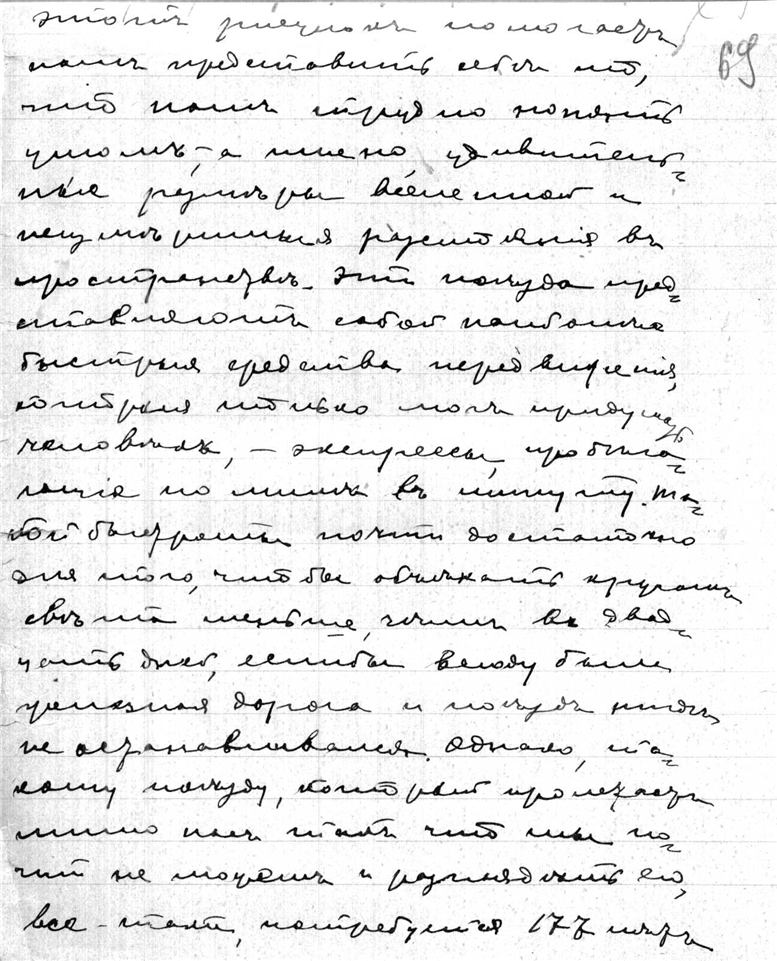 69
этотъ рисунокъ помогаетъ
намъ представить себѣ то,
что намъ трудно понять
умомъ, – а имено удивитель=
ные размѣры вселенной и
неизмѣримыя разстоянія въ
пространствѣ. Эти поѣзда пред=
ставляютъ собой наиболѣе
быстрыя средства передвиженія,
которыя только могъ придумать
человѣкъ, – экспрессы, пробѣга=
ющіе по милѣ въ минуту. Та=
кой быстроты почти достаточно
для того, чтобы объѣхать кругомъ
свѣта меньше, чѣмъ въ двад=
цать дней, еслибы всюду была
желѣзная дорога и поѣздъ нигдѣ
не останавливался. Однако, та=
кому поѣзду, который пролетаетъ
мимо насъ такъ что мы по=
чти не можемъ и разглядѣть его,
все-таки, потребуется 177 лѣтъ